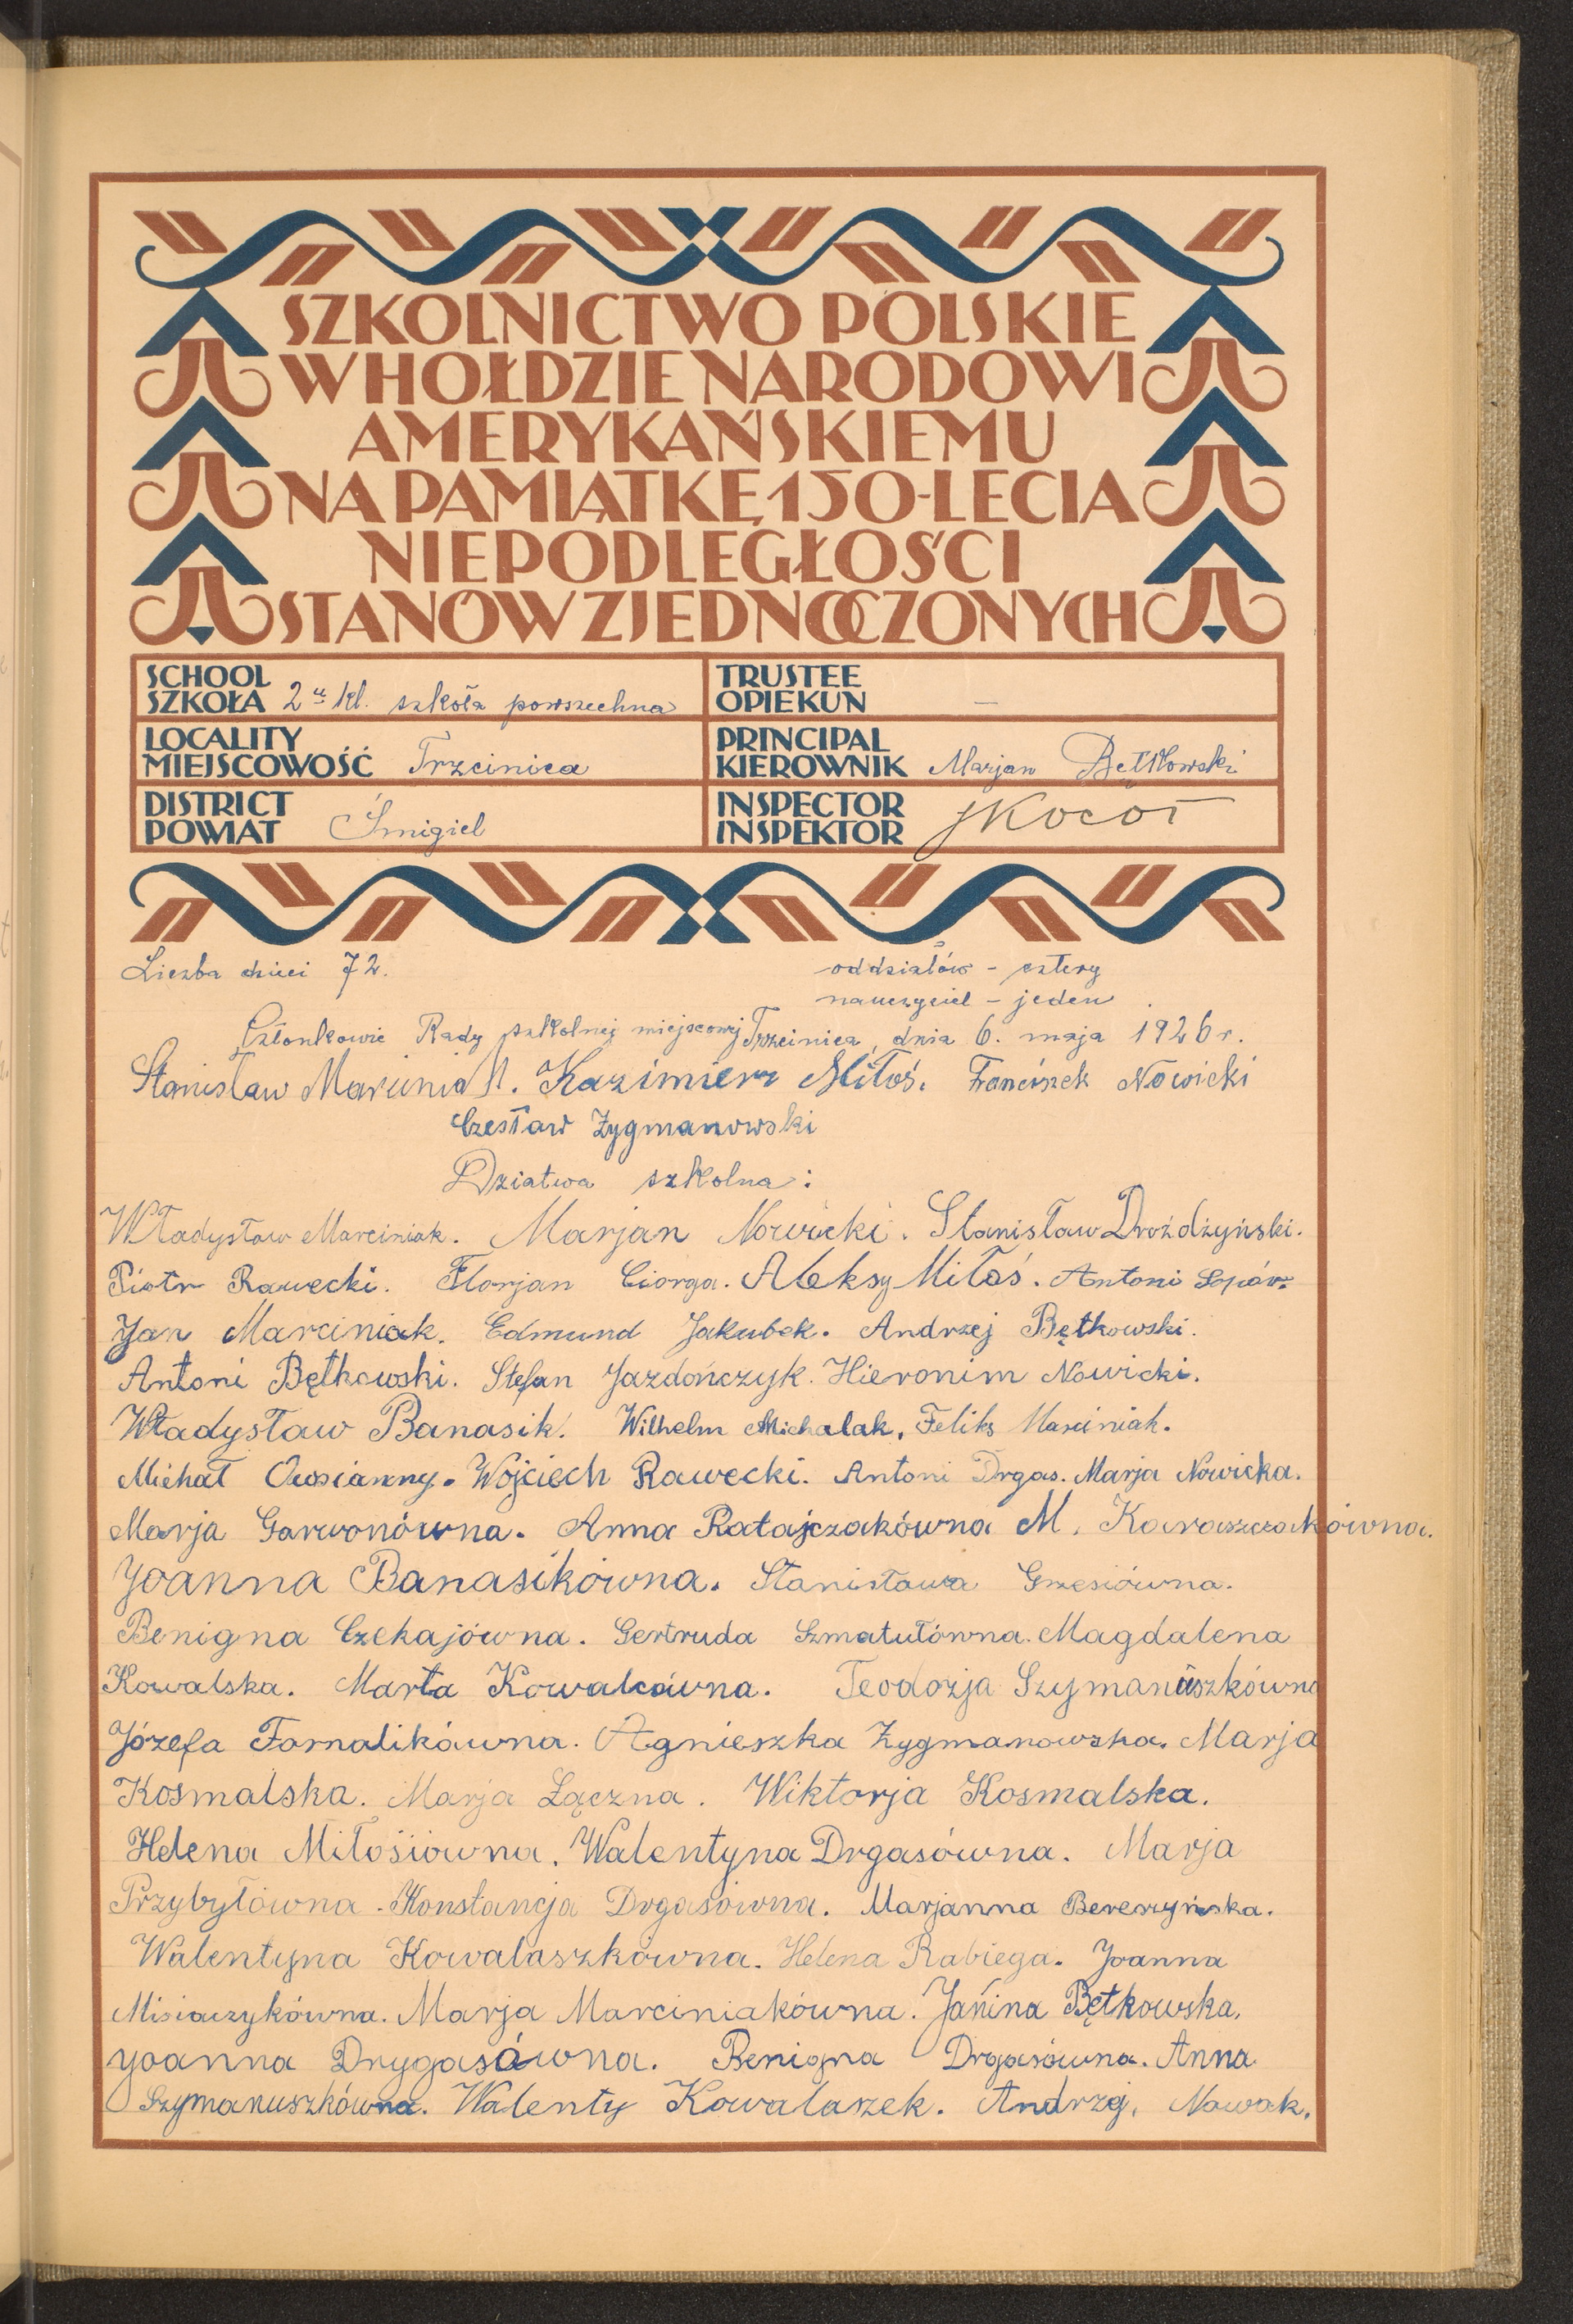 SZKOLNICTWO POLSKIE
W HOŁDZIE NARODOWI
AMERYKAŃSKIEMU
NA PAMIĄTKĘ 150-LECIA
NIEPODLEGŁOŚCI
STANÓW ZJEDNOCZONYCH
SCHOOL
SZKOŁA 2 u kl. szkoła powszechna
TRUSTEE
OPIEKUN —
LOCALITY
MIEJSCOWOŚĆ Trzcinica
PRINCIPAL
KIEROWNIK Marjan Bętkowski
DISTRICT
POWIAT Śmigiel
INSPECTOR
INSPEKTOR JKocot
Liczba dzieci 72.
oddziałów - cztery
nauczyciel - jeden
Członkowie Rady szkolnej miejscowej Trzcinica, dnia 6. maja 1926 r.
Stanisław Marciniak. Kazimierz Miłoś. Franciszek Nowicki
Czesław Zygmanowski
Dziatwa szkolna:
Władysław Marciniak. Marjan Nowicki. Stanisław Drożdżyński.
Piotr Rawecki. Florjan Ciorga. Aleksy Miłoś. Antoni
Jan Marciniak. Edmund Jakubek. Andrzej Bętkowski.
Antoni Bętkowski. Stefan Jazdończyk. Hieronim Nowicki.
Władysław Banasik. Wilhelm Michalak. Feliks Marciniak.
Michał Owsianny. Wojciech Rawecki. Antoni Drgas. Marja Nowicka.
Marja Garwonówna. Anna Ratajczakówna M. Karaszczakówna.
Joanna Banasikówna. Stanisława Grzesiówna.
Benigna Czekajówna. Gertruda Szmatułówna. Magdalena
Kowalska. Marta Kowalcówna. Teodozja Szymanuszkówna
Józefa Fornalikówna. Agnieszka Zygmanowska. Marja
Kosmalska. Marja Łączna. Wiktorja Kosmalska.
Helena Miłosiówna. Walentyna Drgasówna. Marja
Przybyłówna. Konstancja Drgasówna. Marjanna Bereszyńska.
Walentyna Kowalaszkówna. Helena Rabiega. Joanna
Misiaczykówna. Marja Marciniakówna. Janina Bętkowska.
Joanna Drygasówna. Benigna Drgasówna. Anna
Szymanuszkówna. Walenty Kowalaszek. Andrzej. Nowak.